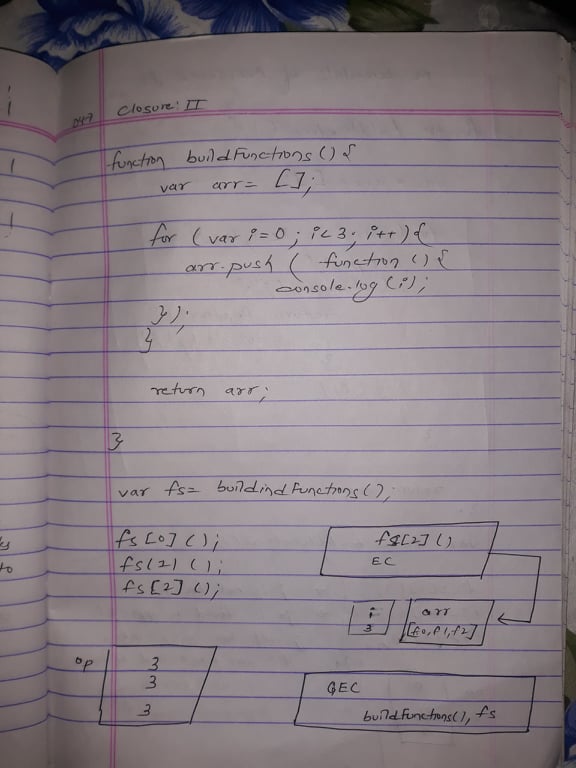 047 Closure: II
function buildFunctions () {
var arr = [];
for (var i=0; i<3; i++) {
arr.push ( function () {
console.log (i);
});
}
return arr;
}
var fs= buildind Functions ();
fs [0] ();
fs(2) ();
fs [2] ();
fs[2] ()
EC
i
3
arr
[f0, f1, f2]
op
3
3
3
GEC
buildFunctions(), fs